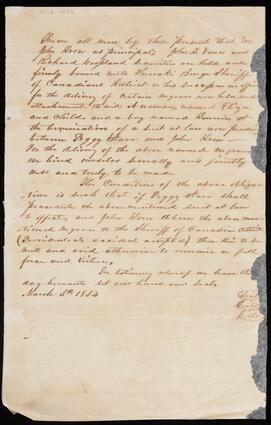 Know all men by these present that we
John Drew as principal; John F. Vann and
Richard Securities are held and
firmly bound unto Bunge Sheriff
of Canadian District or his successor in office
for the delivery of Certain negroes now held on
attachment, to wit; A woman named Eliza
and Child and a boy named Dennis at
the termination of a suit at law now pending
between Peggy and John Drew.
In the delivery of the above named negroes
we bind ourselves severally and jointly
well and truly to be made
The Condition of the above obliga-
tion is such that if Peggy shall
prosecute the above mentioned suit at law
to effect, and John Drew deliver the above men-
tioned negroes to the Sheriff of Canadian District
(Providential accident excepted) then this to be
null and void otherwise to remain in full
force and virtue.
In testimony whereof we have this
day hereunto set our hand and seals
March 5th 1853